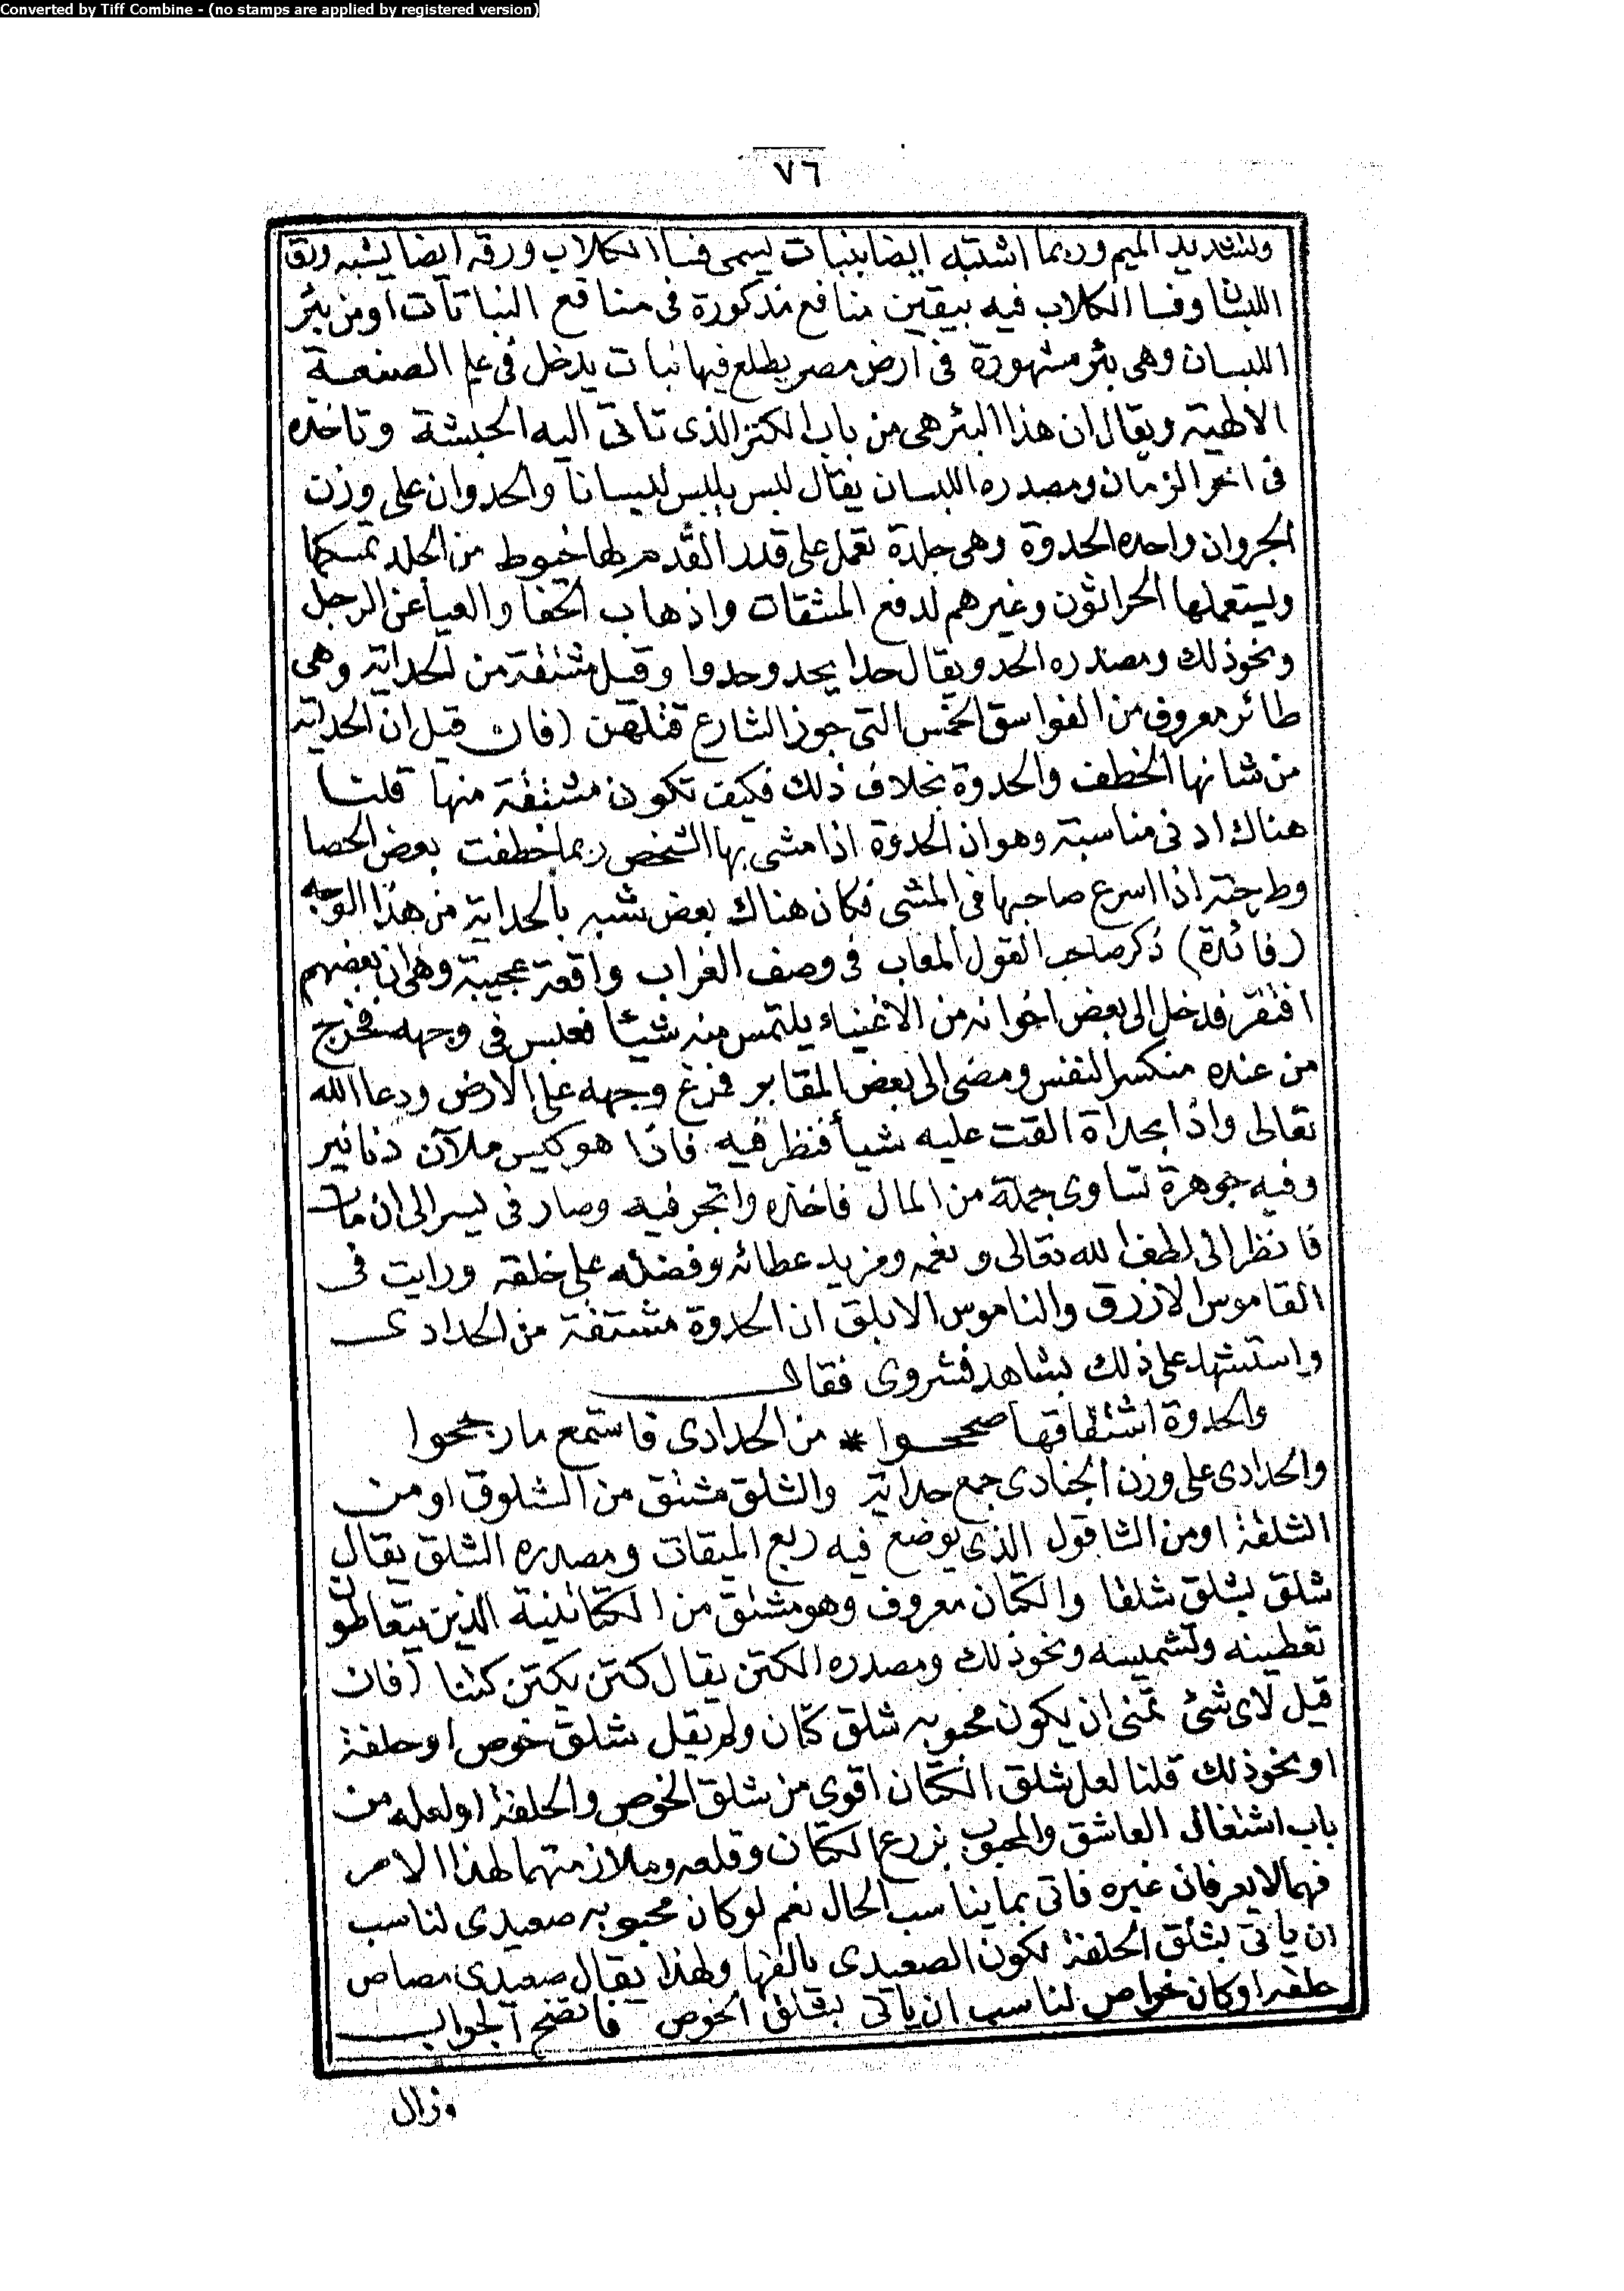 Converted by Tiff Combine - (no stamps are applied by registered version)
٧٦
وتشديد الميم وربما اشتبه ايضا بنبات يسمى فسا الكلاب ورقه ايضا يشبه ورق
اللبسان وفسا الكلاب فيه بيقين منافع مذكورة فى منافع النباتات او من بئر
اللبسان وهى بئر مشهورة فى ارض مصر يطلع فيها نبات يدخل فى علم الصنعة
الالهية ويقال ان هذا البئر هى من باب الكنز الذى تاتى اليه الحبشة وتاخذه
فى اخر الزمان ومصدره اللبسان يقال لبس يلبس لبسانا والحدوان على وزن
الجروان واحده الحدوة وهى جلدة تعمل على قدر القدم لها خيوط من الجلد تمسكها
ويستعملها الحراثون وغيرهم لدفع المشقات واذهاب الحفا والعيا عن الرجل
ونحوذلك ومصدره الحدو يقال حدا يحدو حدوا وقيل مشتقة من الحداية وهى
طائر معروف من الفواسق الخمس التى جوز الشارع قتلهن (فان قيل ان الحداية
من شانها الخطف والحدوة بخلاف ذلك فكيف تكون مشتقة منها قلنا
هناك ادنى مناسبة وهو ان الحدوة اذا مشى بها الشخص ربما خطفت بعض الحصا
وطرحته اذا اسرع صاحبها فى المشى فكان هناك بعض شبه بالحداية من هذا الوجه
(فائدة) ذكر صاحب القول المعاب فى وصف الغراب واقعة عجيبة وهى ان بعضهم
افتقر فدخل الى بعض اخوانه من الاغنياء يلتمس منه شيئا فعبس فى وجهه فخرج
من عنده منكسر النفس ومضى الى بعض المقابر فمرغ وجهه على الارض ودعا الله
تعالى واذا بحداة القت عليه شيأ فنظر فيه فاذا هو كيس ملآن دنانير
وفيه جوهرة تساوى جملة من المال فاخذه واتجر فيه وصار فى يسر الى ان مات
فانظر الى لطف الله تعالى ونعمه ومزيد عطائه وفضله على خلقه ورايت فى
القاموس الازرق والناموس الابلق ان الحدوة مشتقة من الحدادى
واستشهد على ذلك بشاهد فشروى فقال
والحدوة اشتقاقها صححوا * من الحدادى فاستمع ما رجحوا
والحدادى على وزن الجنادى جمع حداية والشلق مشتق من الشلوق او من
الشلقة او من الشاقول الذى يوضع فيه ربع الميقات ومصدره الشلق يقال
شلق يشلق شلقا والكتان معروف وهو مشتق من الكتانيبة الذين يتعاطون
تعطينه وتشميسه ونحوذلك ومصدره الكتن يقال كتن يكتن كتنا (فان
قيل لاى شئ تمنى ان يكون محبوبه شلق كتان ولم يقل شلق خوص او حلفة
او نحوذلك قلنا لعل شلق الكتان اقوى من شلق الخوص والحلفة او لعله من
باب اشتغال العاشق والمحبوب بزرع الكتان وقلعه وملازمتهما لهذا الامر
فهما لا يعرفان غيره فاتى بما يناسب الحال نعم لو كان محبوبه صعيدى لناسب
ان ياتى بشلق الحلفة لكون الصعيدى يالفها ولهذا يقال صعيدى مصاص
حلفه او كان خواص لناسب ان ياتى بشلق الخوص فاتضح الجواب
وزال